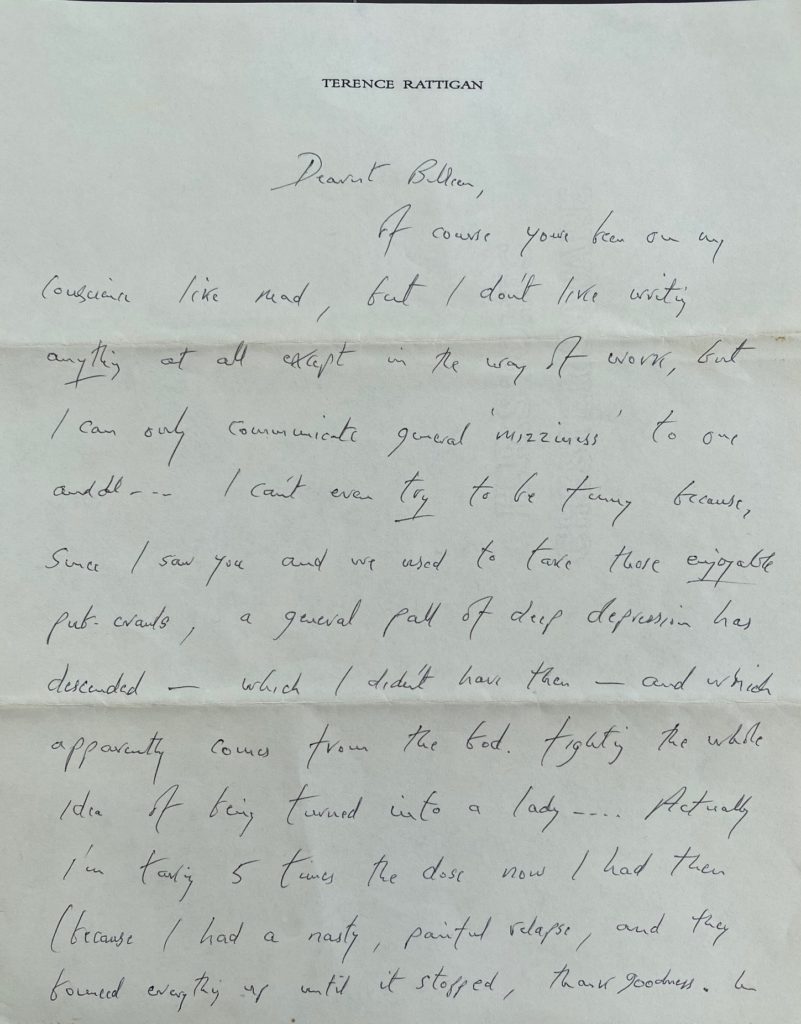 TERENCE RATTIGAN
Dearest Billeen,
Of course you've been on my
conscience like mad, but I don't like writing
anything at all except in the way of work, but
I can only communicate general 'mizziness' to one
and all --- I can't even try to be funny because,
since I saw you and we used to take those enjoyable
pub-crawls, a general pall of deep depression has
descended — which I didn't have then — and which
apparently comes from the bod. fighting the whole
idea of being turned into a lady ---. Actually
I'm taking 5 times the dose now I had then
(because I had a nasty, painful relapse, and they
everything up until it stopped, thank goodness. In